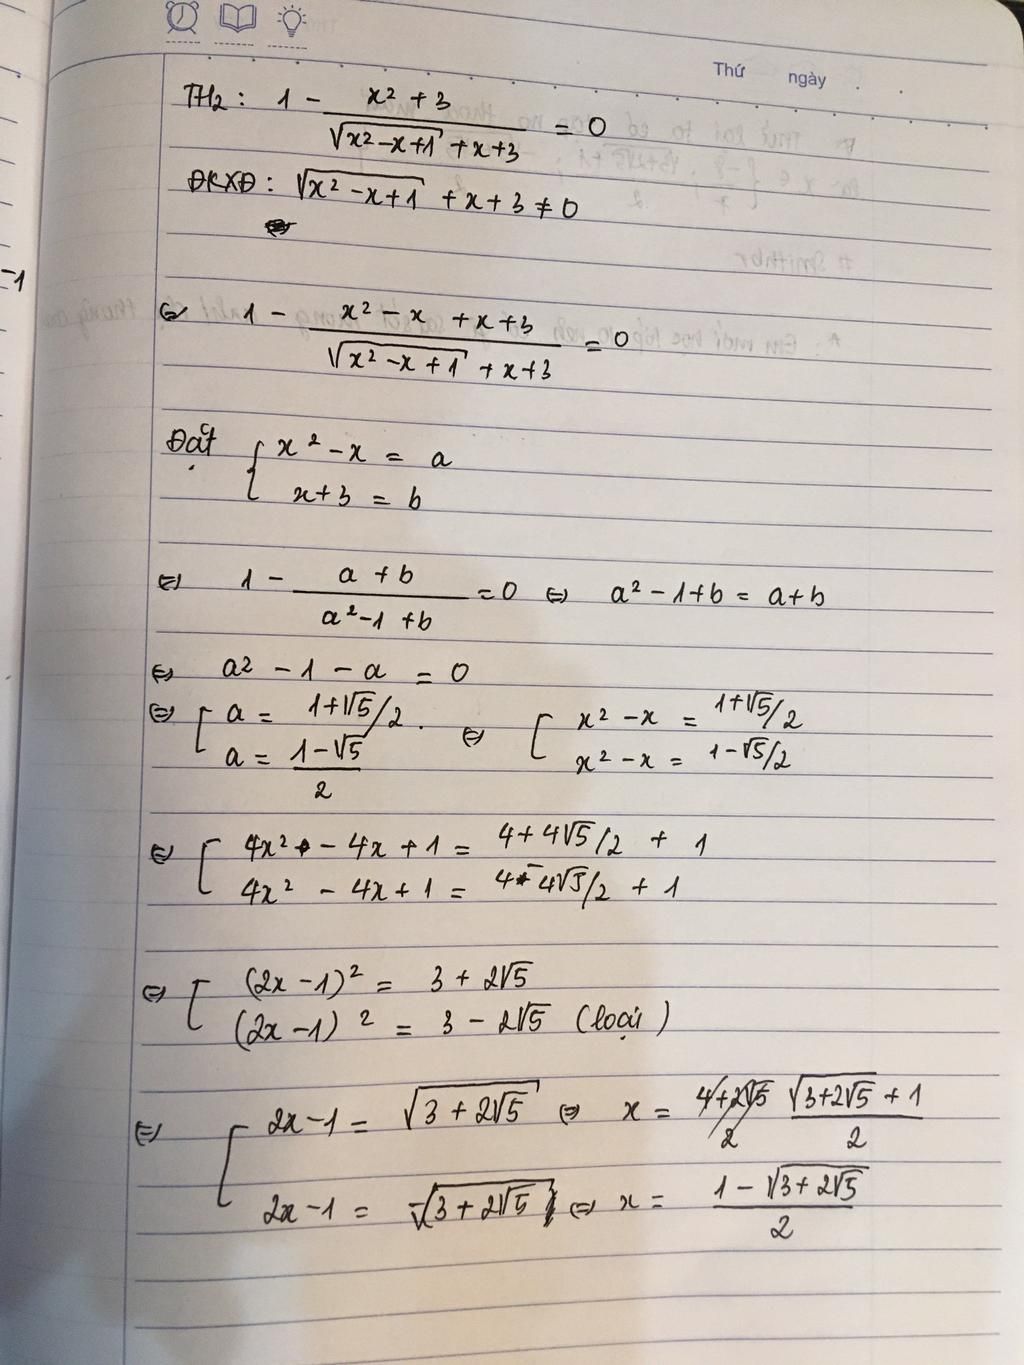 Thứ ngày
TH2: 1 - \frac{x² + 3}{\sqrt{x² - x + 1} + x + 3} = 0
ĐKXĐ: \sqrt{x² - x + 1} + x + 3 ≠ 0
⇔ 1 - \frac{x² - x + x + 3}{\sqrt{x² - x + 1} + x + 3} = 0
Đặt { x² - x = a
x + 3 = b
⇔ 1 - \frac{a + b}{a² - 1 + b} = 0 ⇔ a² - 1 + b = a + b
⇔ a² - 1 - a = 0
⇔ [ a = 1+√5/2. ⇔ [ x² - x = 1+√5/2
a = \frac{1-√5}{2} x² - x = 1-√5/2
⇔ [ 4x² - 4x + 1 = 4+4√5/2 + 1
4x² - 4x + 1 = 4-4√5/2 + 1
⇔ [ (2x - 1)² = 3 + 2√5
(2x - 1)² = 3 - 2√5 (loại)
⇔ [ 2x - 1 = \sqrt{3 + 2√5} ⇔ x = \frac{\sqrt{3+2√5} + 1}{2}
2x - 1 = -\sqrt{3 + 2√5} ⇔ x = \frac{1 - \sqrt{3+2√5}}{2}
-1